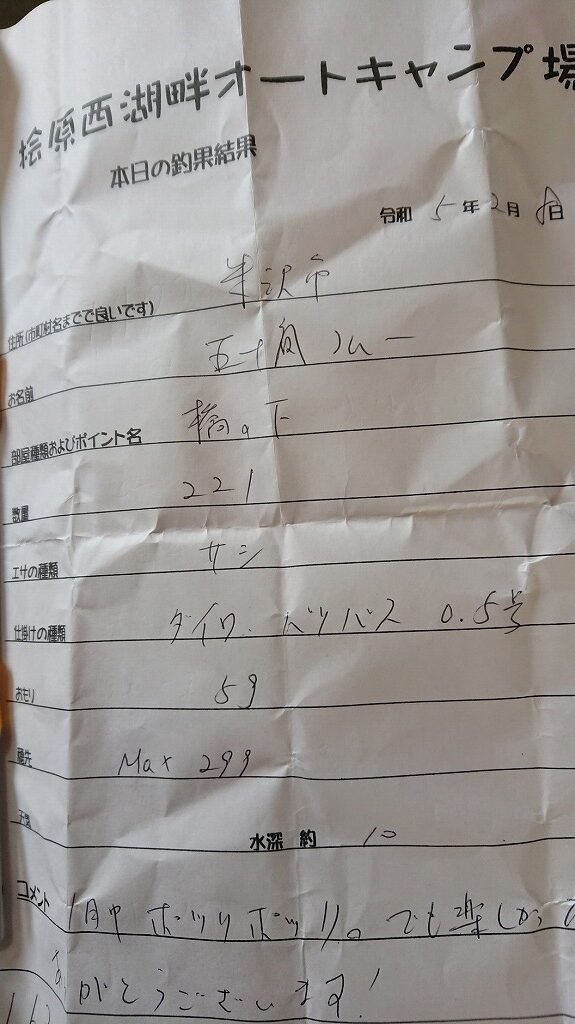 桧原西湖畔オートキャンプ場
本日の釣果結果
令和 5 年 2 月 日
住所(市町村名までで良いです) 米沢市
お名前 五十嵐
部屋種類およびポイント名 橋の下
数量 221
エサの種類 サシ
仕掛けの種類 ダイワ・バリバス 0.5号
おもり 5g
穂先
水深 約 10
コメント 1日中 ポツリポツリ。でも楽しかった
がとうございます!